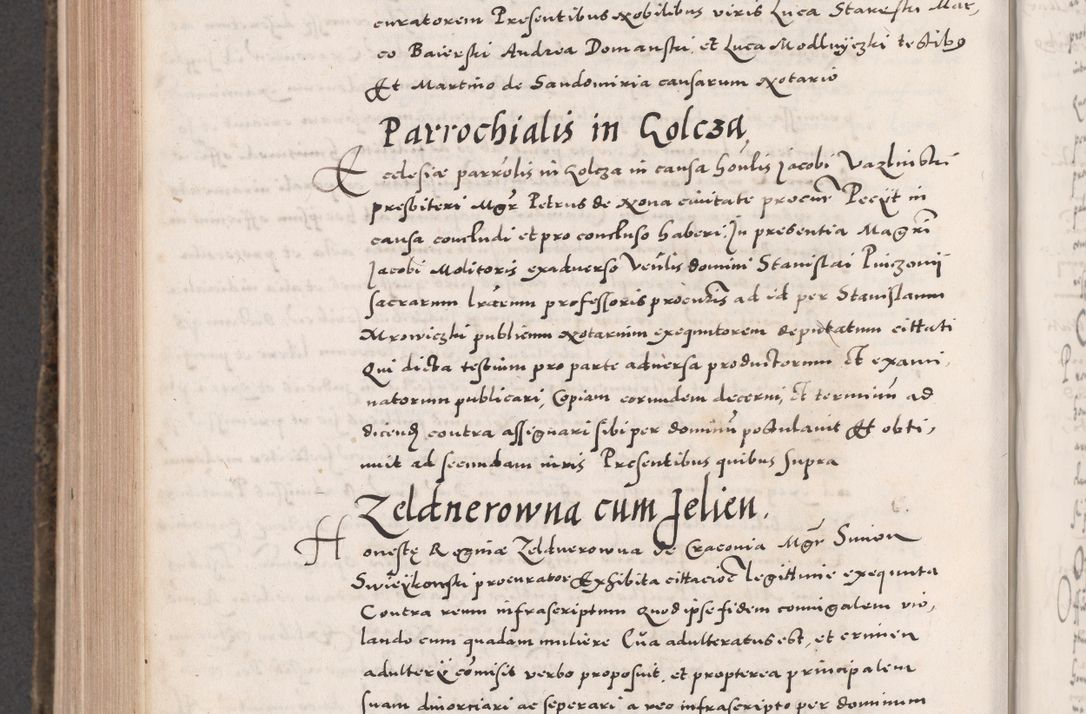 curatorem Presentibus Nobilibus viris Luca Starefki Mar,
co Baierski Andrea Domanski, et Luca Modlnyczki testibq
Et Martino de Sandomiria causarum Notario
Parrochialis in Golcza,
Ecclesiæ parrolis in Golcza in causa honlis Jacobi Vazlinski
presbiteri Mgr Petrus de Nona civitate procur Peciit in
causa concludi et pro concluso haberi, In presentia Magri
Jacobi Molitoris ex adverso venlis domini Stanislai
sacrarum lrarum professoris procuris ad id per Stanislaum
Mrowiczki publicum Notarium exequutorem deputatum cittati
Qui dicta testium pro parte adversa productorum et exami,
natorum publicari, Copiam eorundem decerni, Et terminum ad
dicend contra assignari sibi per dominum postulavit Et obti,
nuit ad secundam iuris Presentibus quibus supra
Zeldnerowna cum Jelien.
Honestę Reginæ Zeldnerowna de Cracovia Mgr Simon
Swieykonski procurator Exhibita cittacione legittime exequuta
Contra reum infrascriptum Quod ipse fidem coniugalem vio,
lando cum quadam muliere Cum adulteratus est, et crimen
adulterij comisit verbo proposuit, et propterea principalem
suam divorciari ac seperari a reo infrascripto per dominum